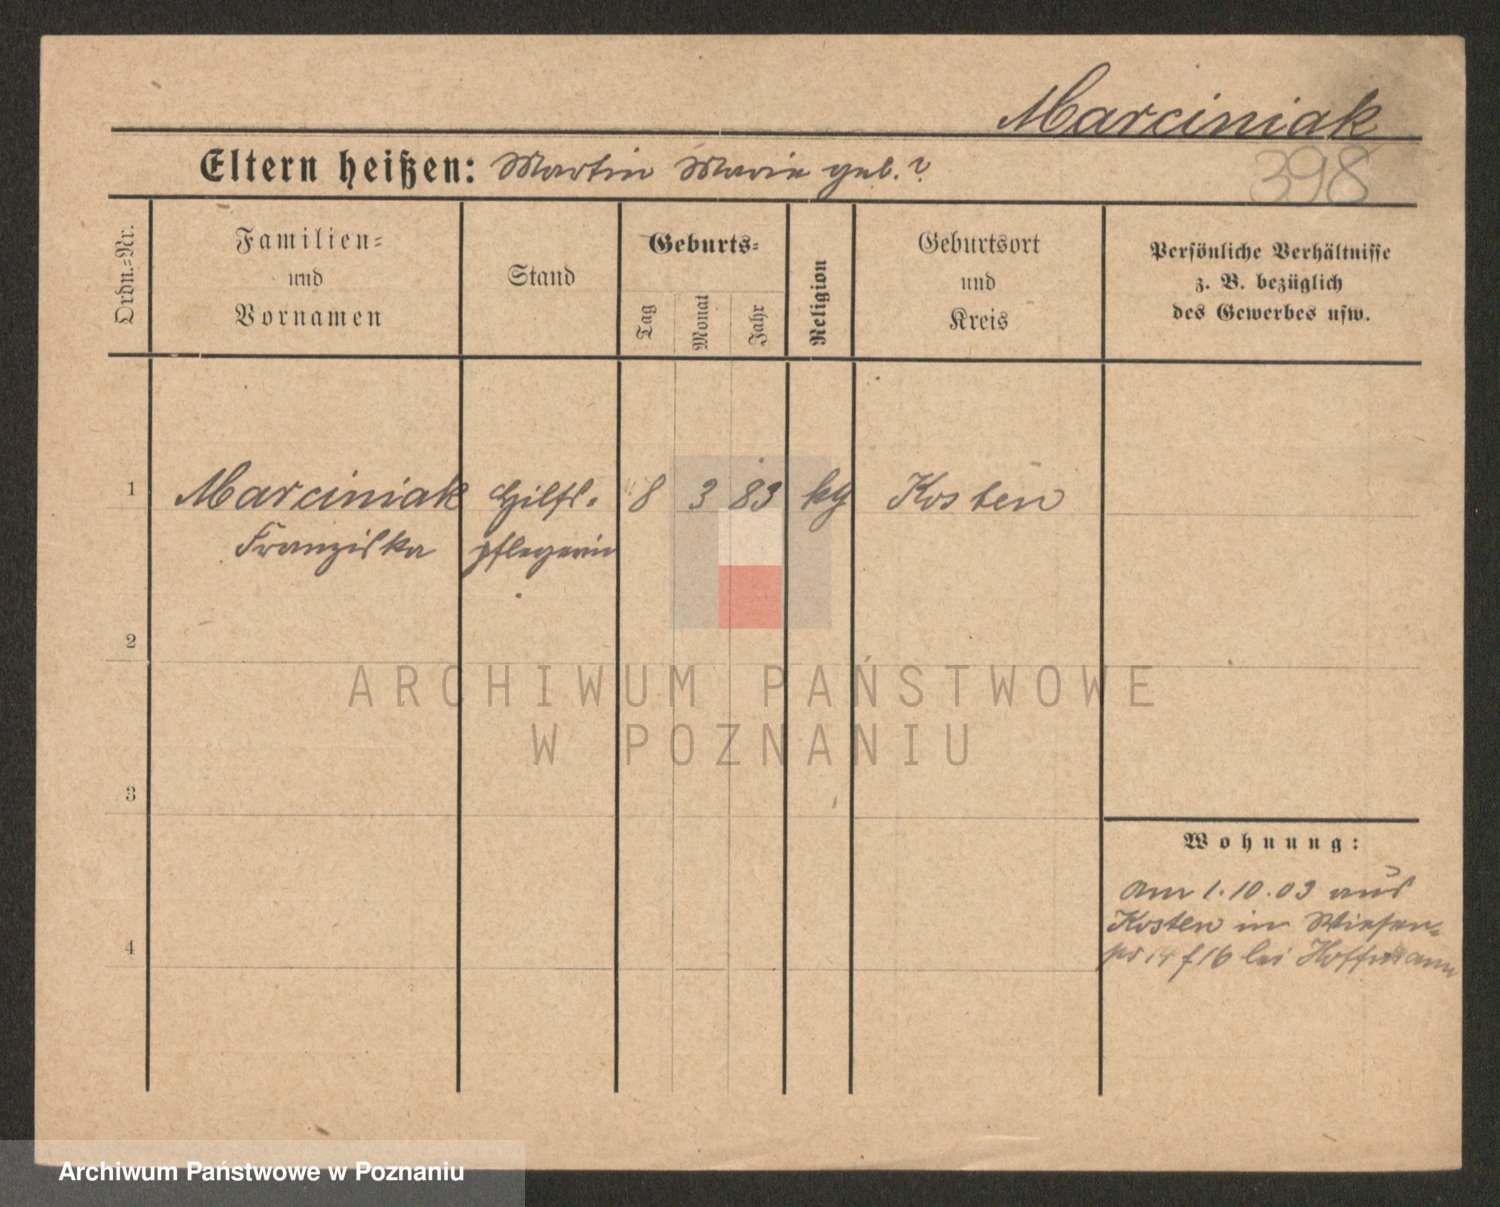 Marciniak
Eltern heißen: Martin Marie geb. ?
398
Ordn.-Nr.
Familien-
und
Vornamen
Stand
Geburts-
Tag
Monat
Jahr
Religion
Geburtsort
und
Kreis
Persönliche Verhältnisse
z. B. bezüglich
des Gewerbes usw.
1
Marciniak
Franziska
Hilfs-
pflegerin
8
3
83
kg
Kosten
2
ARCHIWUM PAŃSTWOWE
W POZNANIU
3
Wohnung:
Am 1.10.03 aus
Kosten in Wiesen-
14 f 16 bei Hoffmann
4
Archiwum Państwowe w Poznaniu